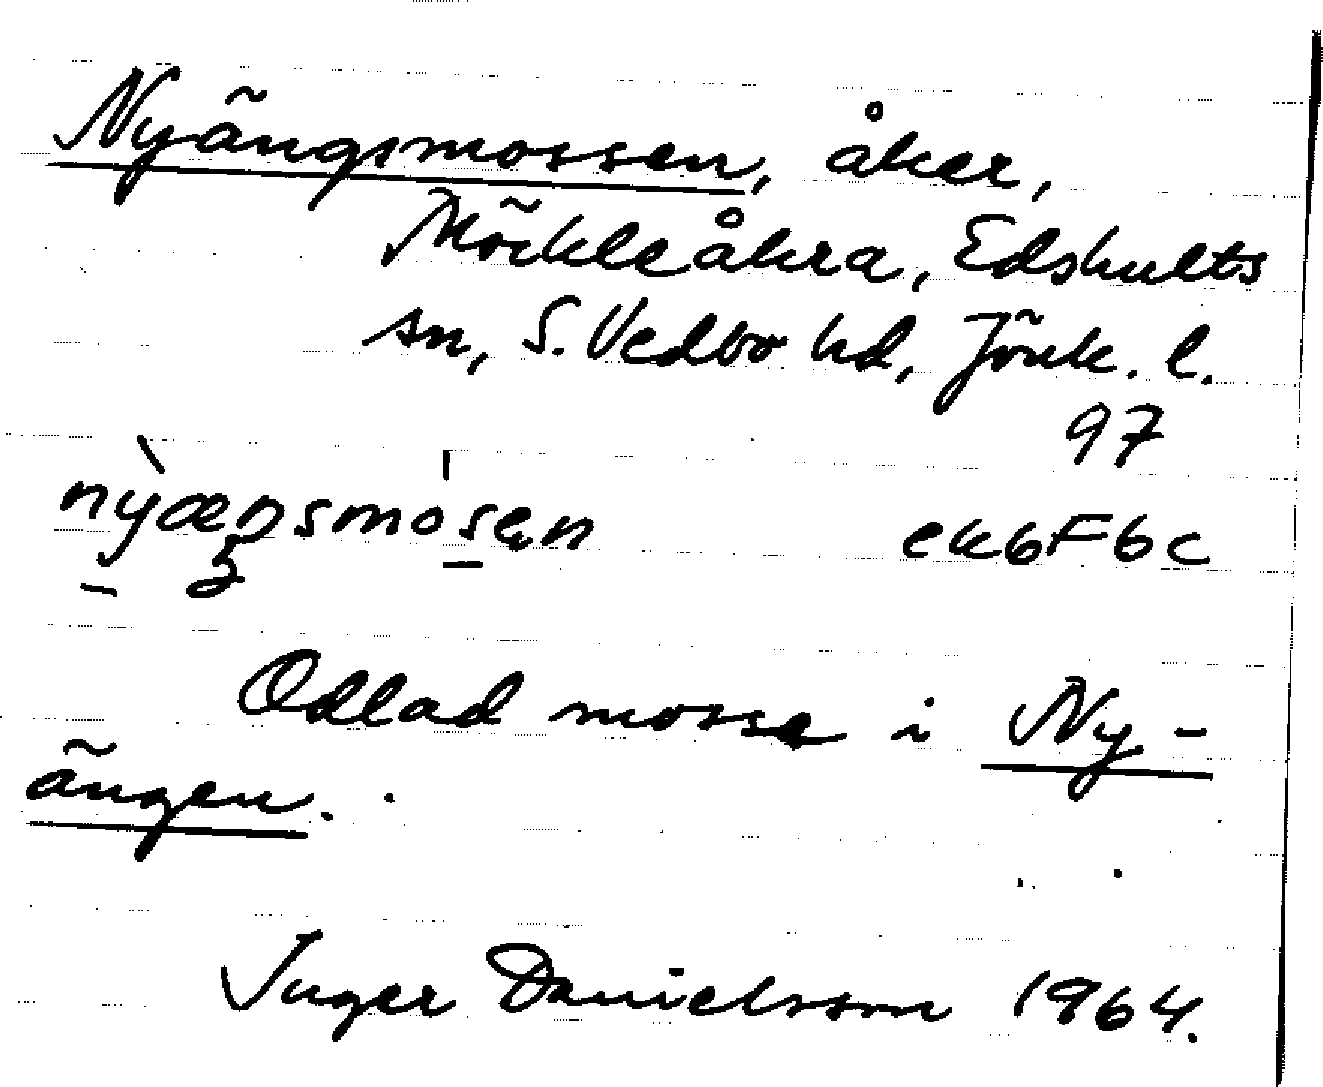 Nyängsmossen, åker,
Möckleåkra, Edshults
sn, S. Vedbo hd, Jönk. l.
97
ek6F6c
Odlad mosse i Ny-
ängen.
Inger Danielsson 1964.